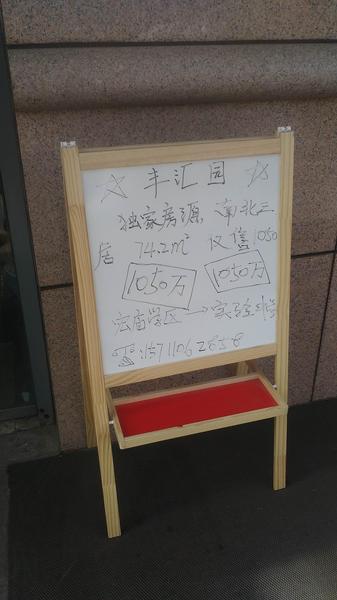 ☆ 丰汇园 ☆
独家房源 南北三
居 74.2m² 仅售1050
1050万 1050万
宏庙学区 → 实验二小
☎:15711062658